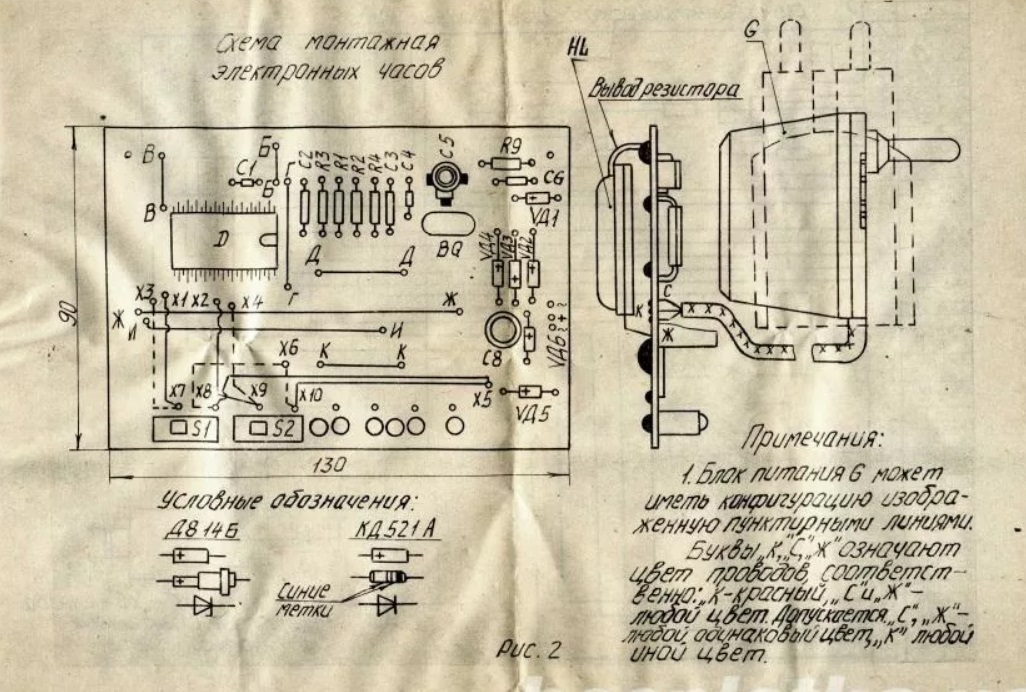 Схема монтажная
электронных часов
HL
G
Вывод резистора
В
Б
С1
Б
С2
R3
R1
R2
R4
С3
С4
С5
R9
С6
VД1
В
D
BQ
VД4
VД3
VД2
Д
Д
Г
X3
X1
X2
X4
Ж
Ж
И
И
С8
VД6
~
+
~
С
К
Ж
X6
К
К
X7
X8
X9
X10
X5
VД5
S1
S2
90
130
Условные обозначения:
Д814Б
КД521А
Синие
метки
Рис. 2
Примечания:
1. Блок питания G может
иметь конфигурацию изобра-
женную пунктирными линиями.
Буквы „К,"„С,"„Ж" означают
цвет проводов, соответст-
венно: „К-красный, „С" и „Ж"-
любой цвет. Допускается „С", „Ж"-
любой одинаковый цвет, „К" любой
иной цвет.